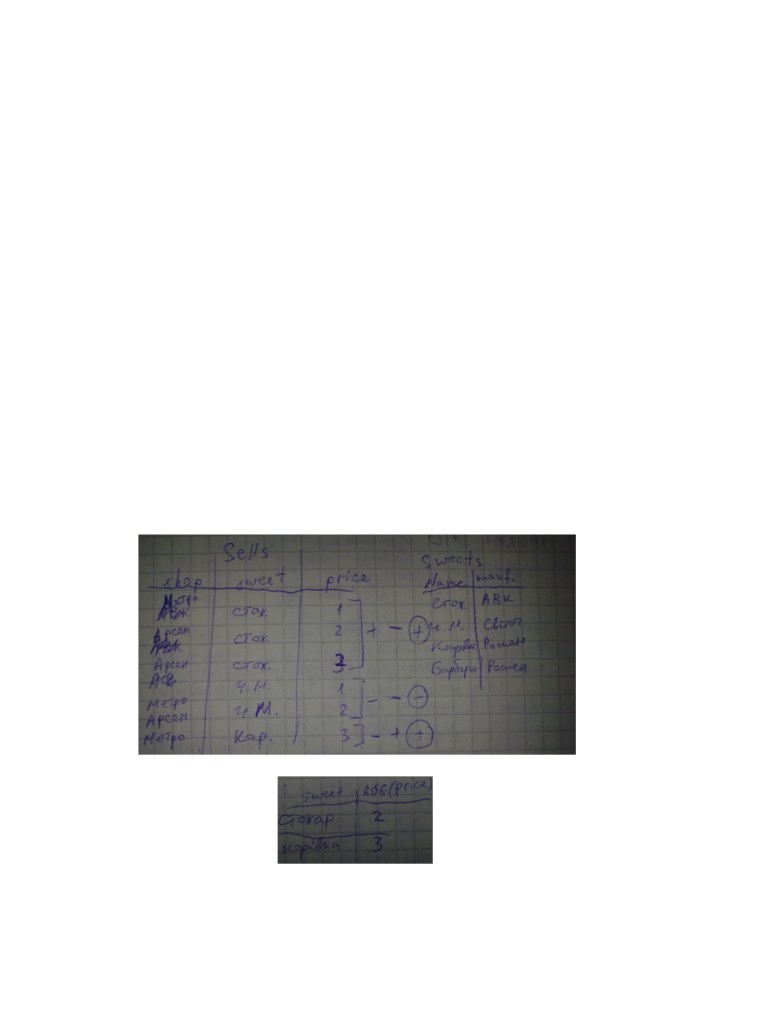 Sells
shop sweet price
Метро стох. 1
Арсен стох. 2
Арсен стох. 3
ч.М. 1
Метро ч М. 2
Арсен
Метро Кар. 3
+ - +
- - -
- + +
Sweets
Name манf.
Стох АВК
ч.М. Світоч
Рошен
Барбарис Рошен
sweet AVG(price)
Стохар 2
3